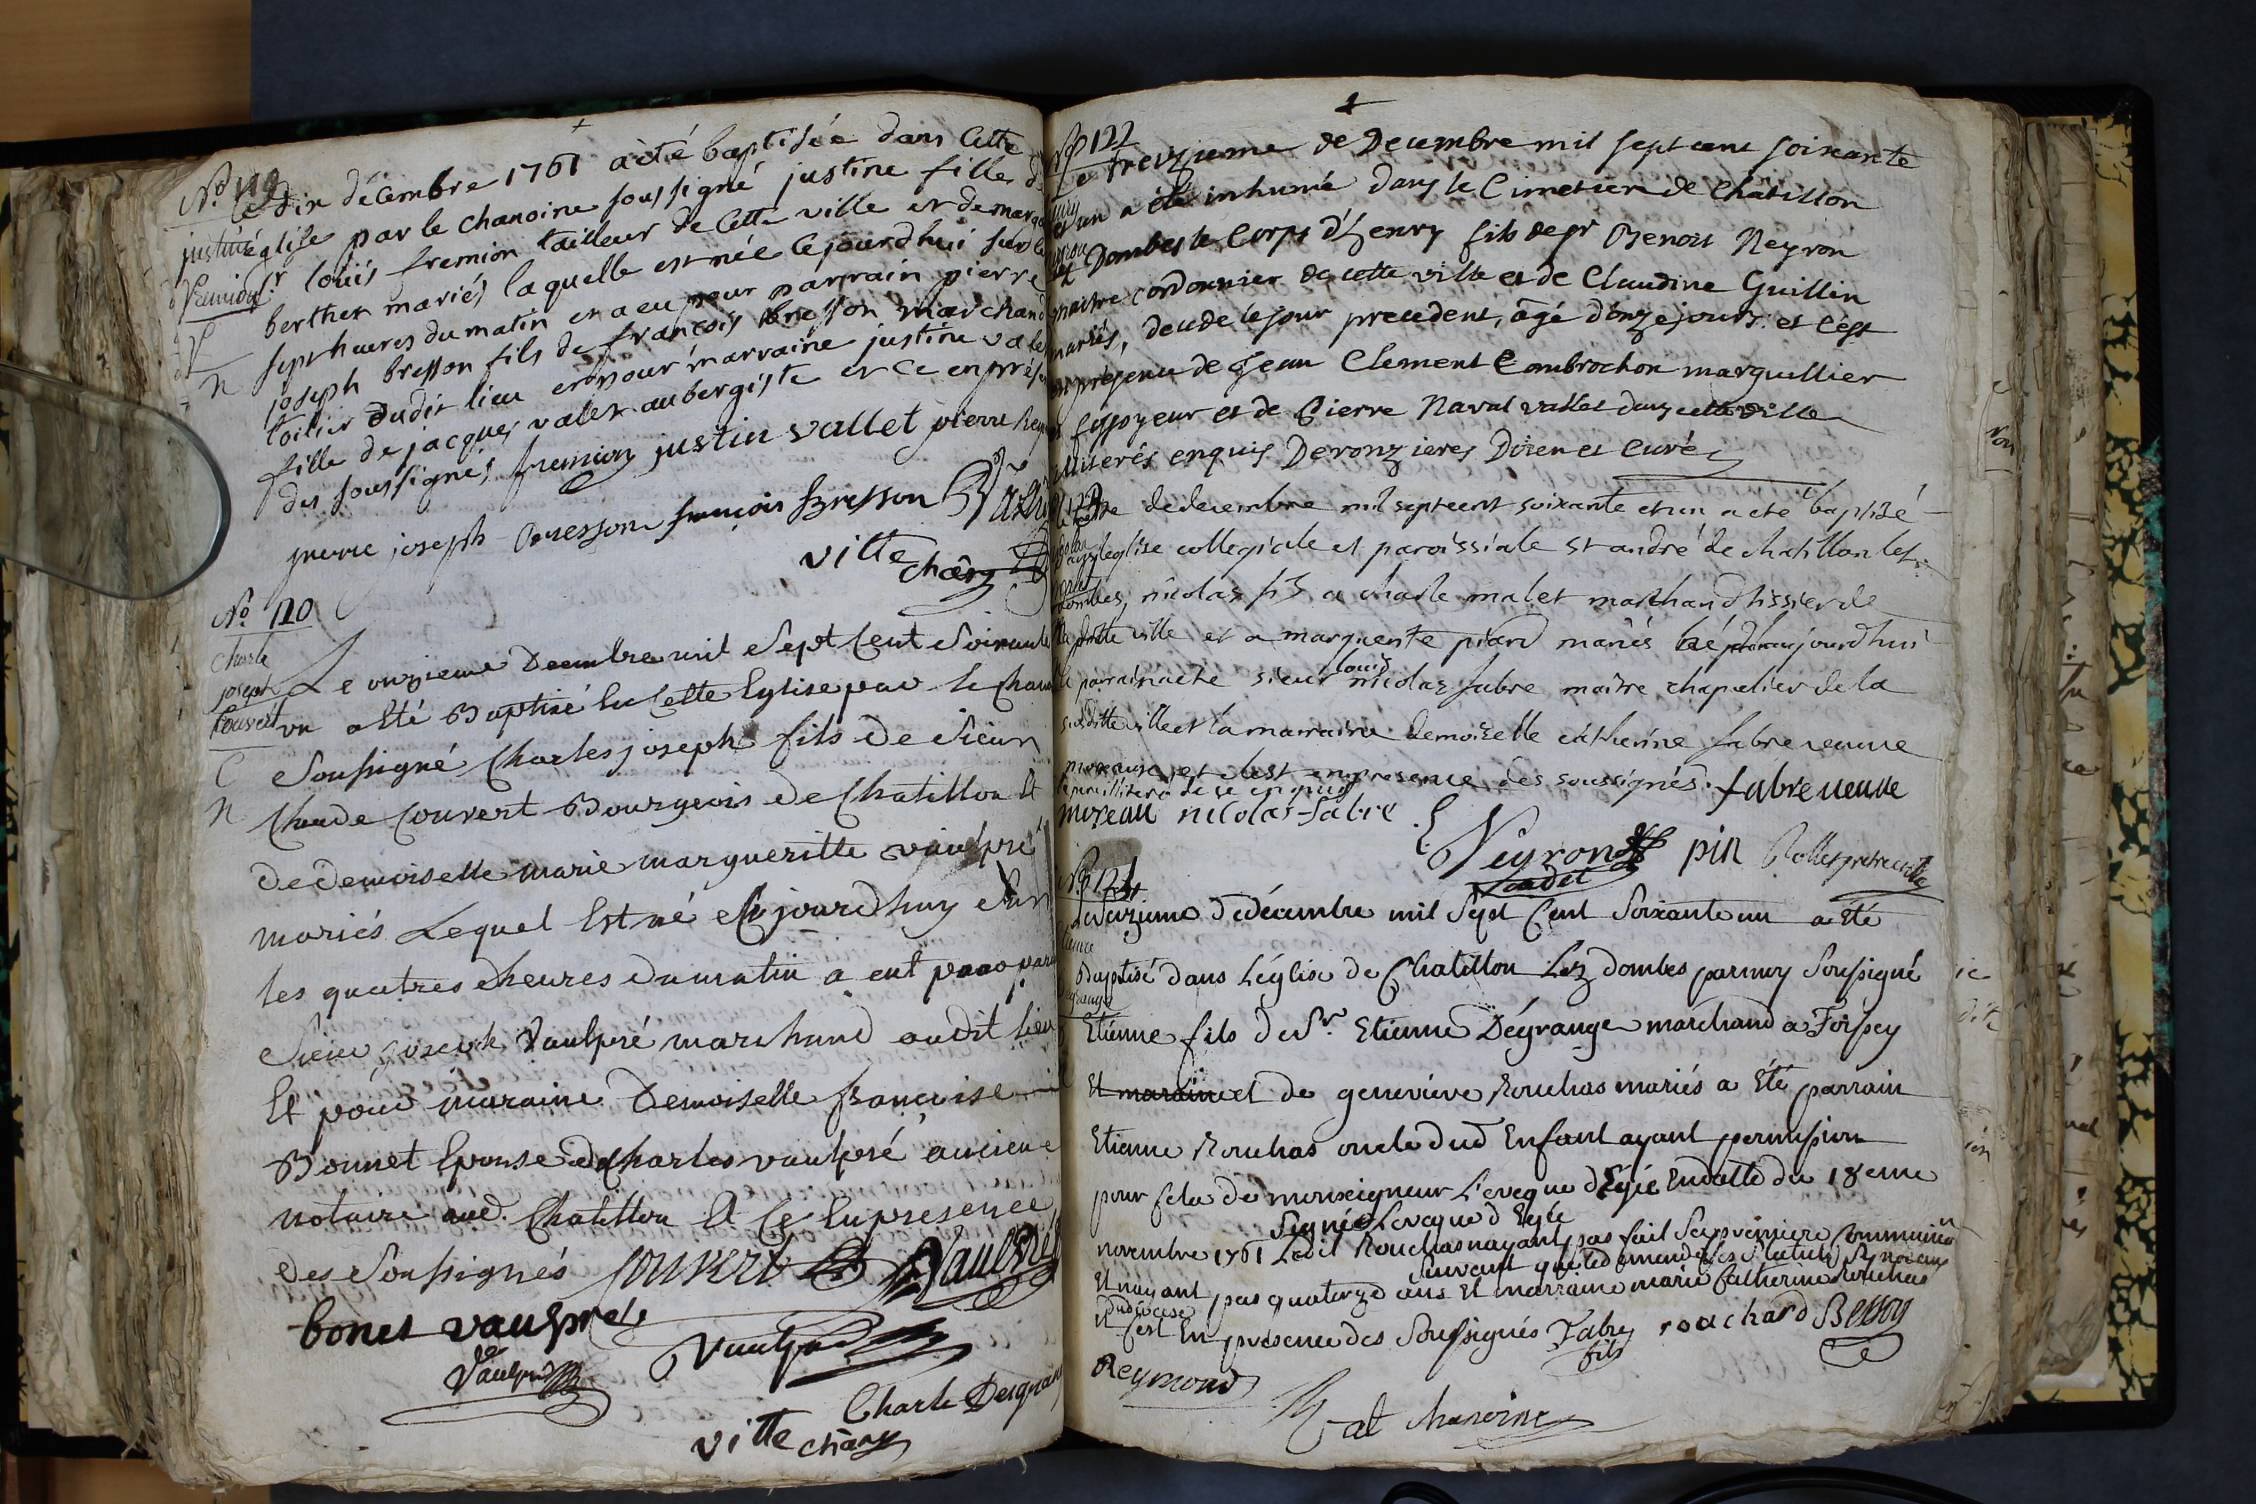 No 119
Le dix décembre 1761 a été baptisée dans cette
justine église par le chanoine soussigné justine fille d
fremion sr louis fremion tailleur de cette ville et de marg
berthet mariés laquelle est née cejourdhui sur le
sept heures du matin et a eu pour parrain pierre
joseph bresson fils de françois bresson marchand
toilier dudit lieu et pour marraine justine vale
fille de jacques valet aubergiste et ce en prése
des soussignés fremion justin vallet pierre
pierre joseph bresson françois Bresson
ville chãn
No 120
Charle
joseph
Couvert
C
N
Le onzieme Decembre mil Sept Cent Soixante
un a Eté Baptisé En Cette Eglise par le Chan
Soussigné Charles joseph fils de Sieur
Claude Couvert Bourgeois de Chatillon Et
de demoiselle marie margueritte vaulpré
mariés Lequel Est né Ce jourdhuy Sur
les quatres heures du matin a eut pour par
Sieur joseph Vaulpré marchand audit lieu
Et pour maraine Demoiselle françoise
Bonnet Epouse de Charles vaulpré anciene
notaire aud. Chatillon Et Ce En presence
des Soussignés Couvert Vaulpré
bonet vaulpré
Vaulpré Vaulpré
Charle Desgran
ville chãn
No 122
Le treizieme de Decembre mil sept cent soixante
et un a été inhumé dans le Cimetiere de Chatillon
lez Dombes le Corps d'henry fils de sr Benoit Neyron
maitre cordonnier de cette ville et de Claudine Guillin
mariés, decedé le jour precedent, âgé d'onze jours: et c'est
en presence de Jean Clement Combrochon marguillier
fossoyeur et de Pierre Naval vallet dans cette ville
illiterés enquis Deronzieres Doien et Curé
de decembre mil septcent soixante et un a eté baptisé
dans leglise collegiale et paroissiale st andré de chatillon les
dombes, nicolas fils a charle malet marchand tissier de
la ditte ville et a marguerite piard mariés né aujourdhui
le parrain a eté sieur louis nicolas fabre maitre chapelier de la
susditte ville et la marraine demoiselle catherine fabre veuve
moreau, et c'est en presence des soussignés. fabre veuve
le pere illiteré de ce enquis
moreau nicolas fabre
Neyron cadet pin Rollet pretre
No 124
Le seizieme de décembre mil Sept Cent Soixante un a Eté
Baptisé dans L'église de Chatillon Lez dombes par moy Soussigné
Etienne fils de Sr. Etienne Dégrange marchand a Foissey
Et maraine et de genevieve Rouchas mariés a Eté parrain
Etienne Rouchas oncle dud Enfant ayant permission
pour Cela de monseigneur L'eveque d'Egée En datte du 18eme
Signée L'eveque d'Egée
novembre 1761 Ledit Rouchas nayant pas fait Sa premiere Communion
Suivant que le demande les Statuts Synodaux
Et nayant pas quatorze ans Et marraine marie Catherine Rouchas
du diocese
Et C'est En presence des Soussignés fabre fils rouchard Besson
Reymond
chanoine